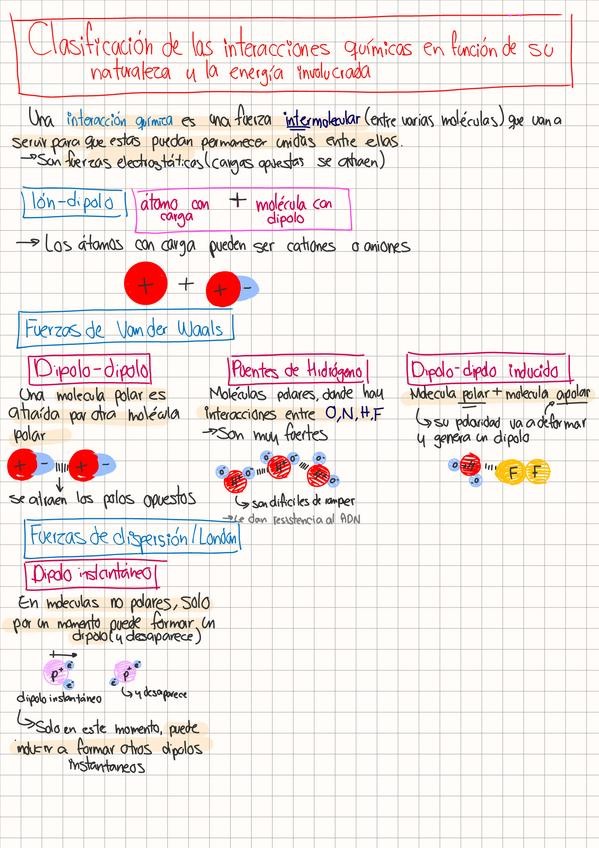 Clasificación de las interacciones químicas en función de su
naturaleza y la energía involucrada
Una interacción química es una fuerza intermolecular (entre varias moléculas) que van a
servir para que estas puedan permanecer unidas entre ellas.
→ Son fuerzas electrostáticas (cargas opuestas se atraen)
Ión-dipolo
átomo con + molécula con
carga dipolo
→ Los átomos con carga pueden ser cationes o aniones
+ + + -
Fuerzas de Van der Waals
Dipolo-dipolo
Una molecula polar es
atraída por otra molécula
polar
+ - + -
se atraen los polos opuestos
Puentes de Hidrógeno
Moléculas polares, donde hay
interacciones entre O,N,H,F
→ Son muy fuertes
↳ son dificiles de romper
→ Le dan resistencia al ADN
Dipolo-dipolo inducido
Molecula polar + molecula apolar
↳ su polaridad va a deformar
y genera un dipolo
F F
Fuerzas de dispersión/London
Dipolo instantáneo
En moleculas no polares, solo
por un momento puede formar un
dipolo (y desaparece)
p+ e- e- p+ e- e-
dipolo instantáneo ↳ y desaparece
↳ Solo en este momento, puede
inducir a formar otros dipolos
instantaneos